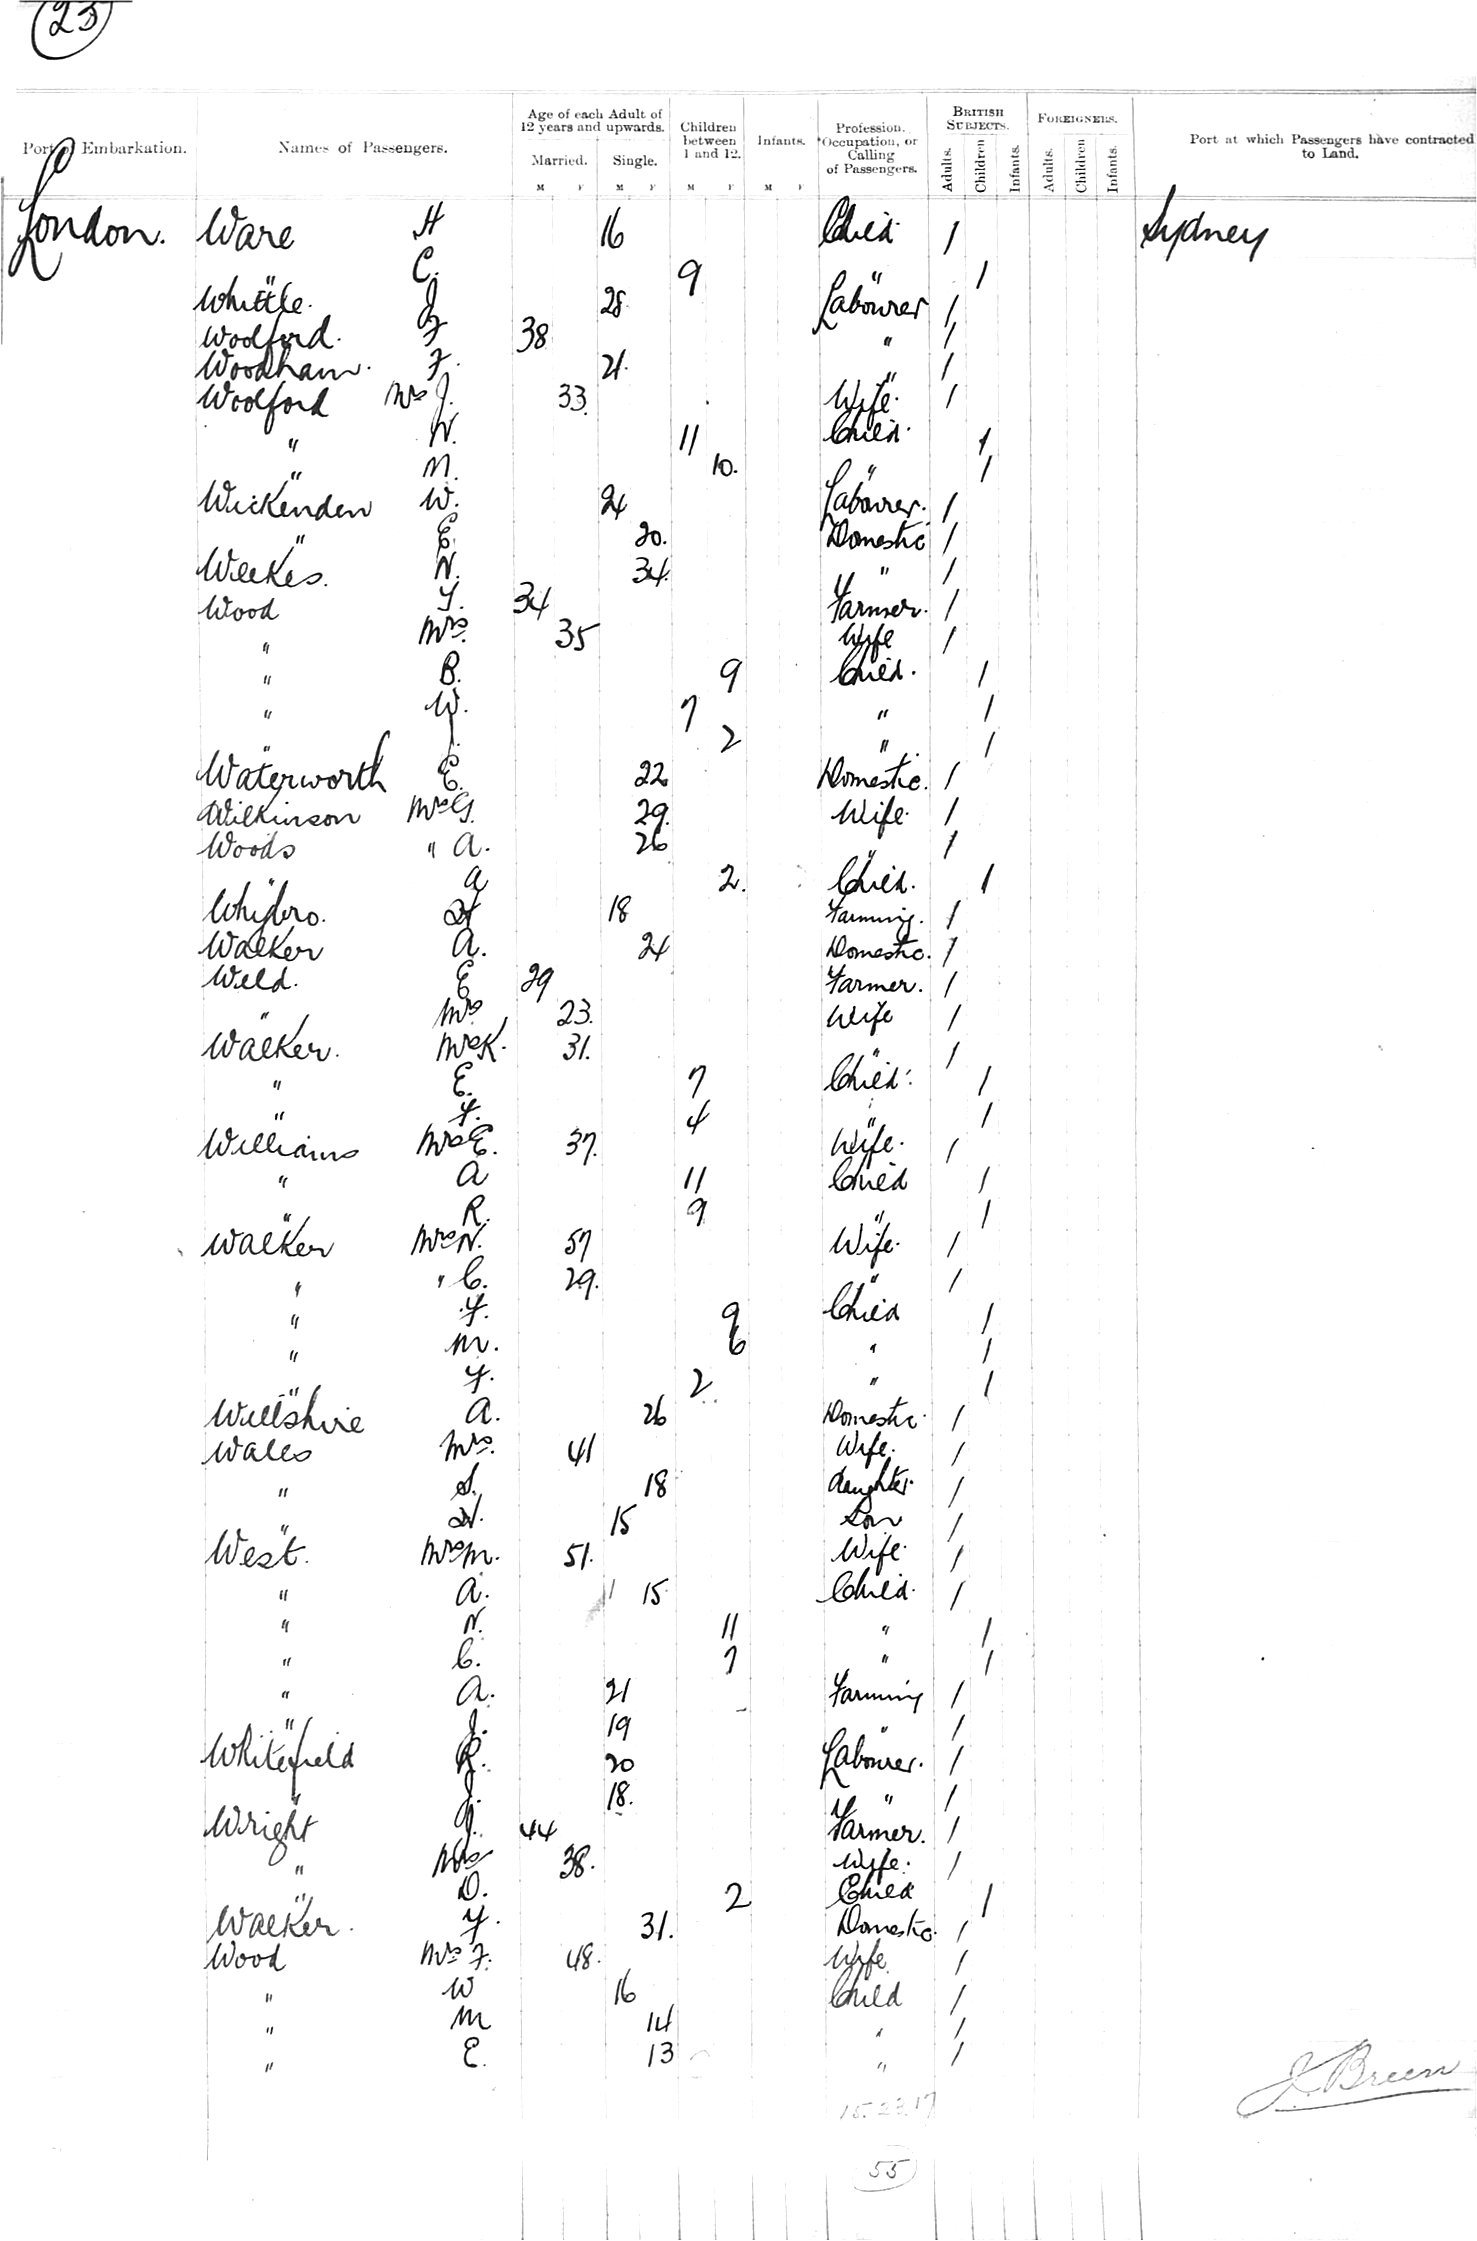 (25)
Port of Embarkation. Names of Passengers. Age of each Adult of 12 years and upwards. Married. Single. M F M F Children between 1 and 12. M F Infants. M F Profession, Occupation, or Calling of Passengers. BRITISH SUBJECTS. Adults. Children Infants. FOREIGNERS. Adults. Children Infants. Port at which Passengers have contracted to Land.
London. Ware H 16 Child 1 Sydney
" C. 9 " 1
Whittle. J 28 Labourer 1
Woolford. F 38 " 1
Woodham. F. 21 " 1
Woolford Mrs J. 33 Wife 1
" N. 11 Child 1
" M. 10. " 1
Wickenden W. 24 Labourer. 1
" E. 20. Domestic 1
Weekes. N. 34 " 1
Wood Y. 34 Farmer. 1
" Mrs. 35 Wife 1
" B. 9 Child. 1
" W. 7 " 1
" J. 2 " 1
Waterworth E. 22 Domestic. 1
Wilkinson Mrs G. 29. Wife 1
Woods " A. 26 " 1
" A 2. Child. 1
Whybro. H 18 Farming. 1
Walker A. 24 Domestic. 1
Weld. E 29 Farmer. 1
" Mrs 23. Wife 1
Walker. Mrs K. 31. " 1
" E. 7 Child. 1
" F. 4 " 1
Williams Mrs E. 37. Wife. 1
" A 11 Child 1
" R. 9 " 1
Walker Mrs N. 57 Wife. 1
" " C. 29. " 1
" F. 9 Child 1
" M. 6 " 1
" F. 2 " 1
Willshire A. 26 Domestic. 1
Wales Mrs. 41 Wife. 1
" S. 18 daughter. 1
" H. 15 Son 1
West. Mrs M. 51. Wife. 1
" A. 15 Child. 1
" N. 11 " 1
" C. 7 " 1
" A. 21 Farming 1
" J. 19 " 1
Whitefield R. 20 Labourer. 1
" J. 18. " 1
Wright J. 44 Farmer. 1
" Mrs 38. Wife. 1
" D. 2 Child 1
Walker. F. 31. Domestic. 1
Wood Mrs F. 48. Wife 1
" W 16 Child 1
" M 14 " 1
" E. 13 " 1
J. Breen
15.23.17
55